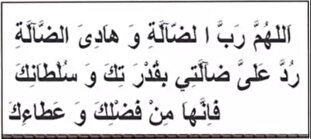 اَللهُمَّ رَبَّ ا لضَّآلَّةِ وَ هَادِىَ الضَّآلَّةِ
رُدَّ عَلَىَّ ضَآلَّتِي بِقُدْرَ تِكَ وَ سُلْطَانِكَ
فَاِنَّهَا مِنْ فَضْلِكَ وَ عَطَاءِكَ